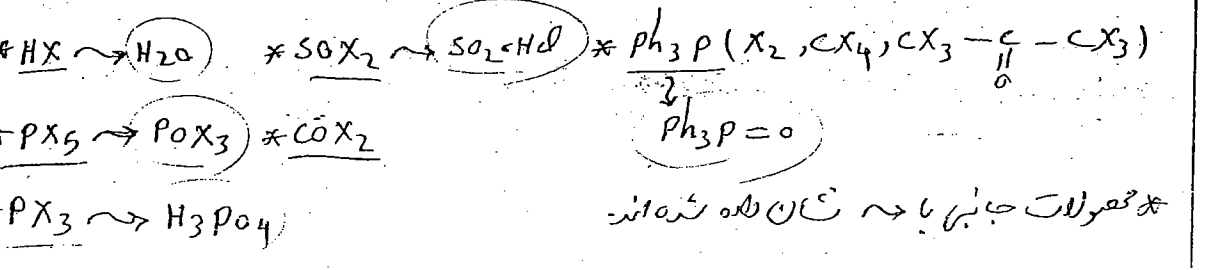 * HX ⇝ H2O * SOX2 ⇝ SO2, HCl * Ph3P (X2, CX4, CX3-C(=O)-CX3)
- PX5 ⇝ POX3 * COX2 Ph3P=O
- PX3 ⇝ H3PO4
* محصولات جانبی با ⇝ نشان داده شده‌اند.